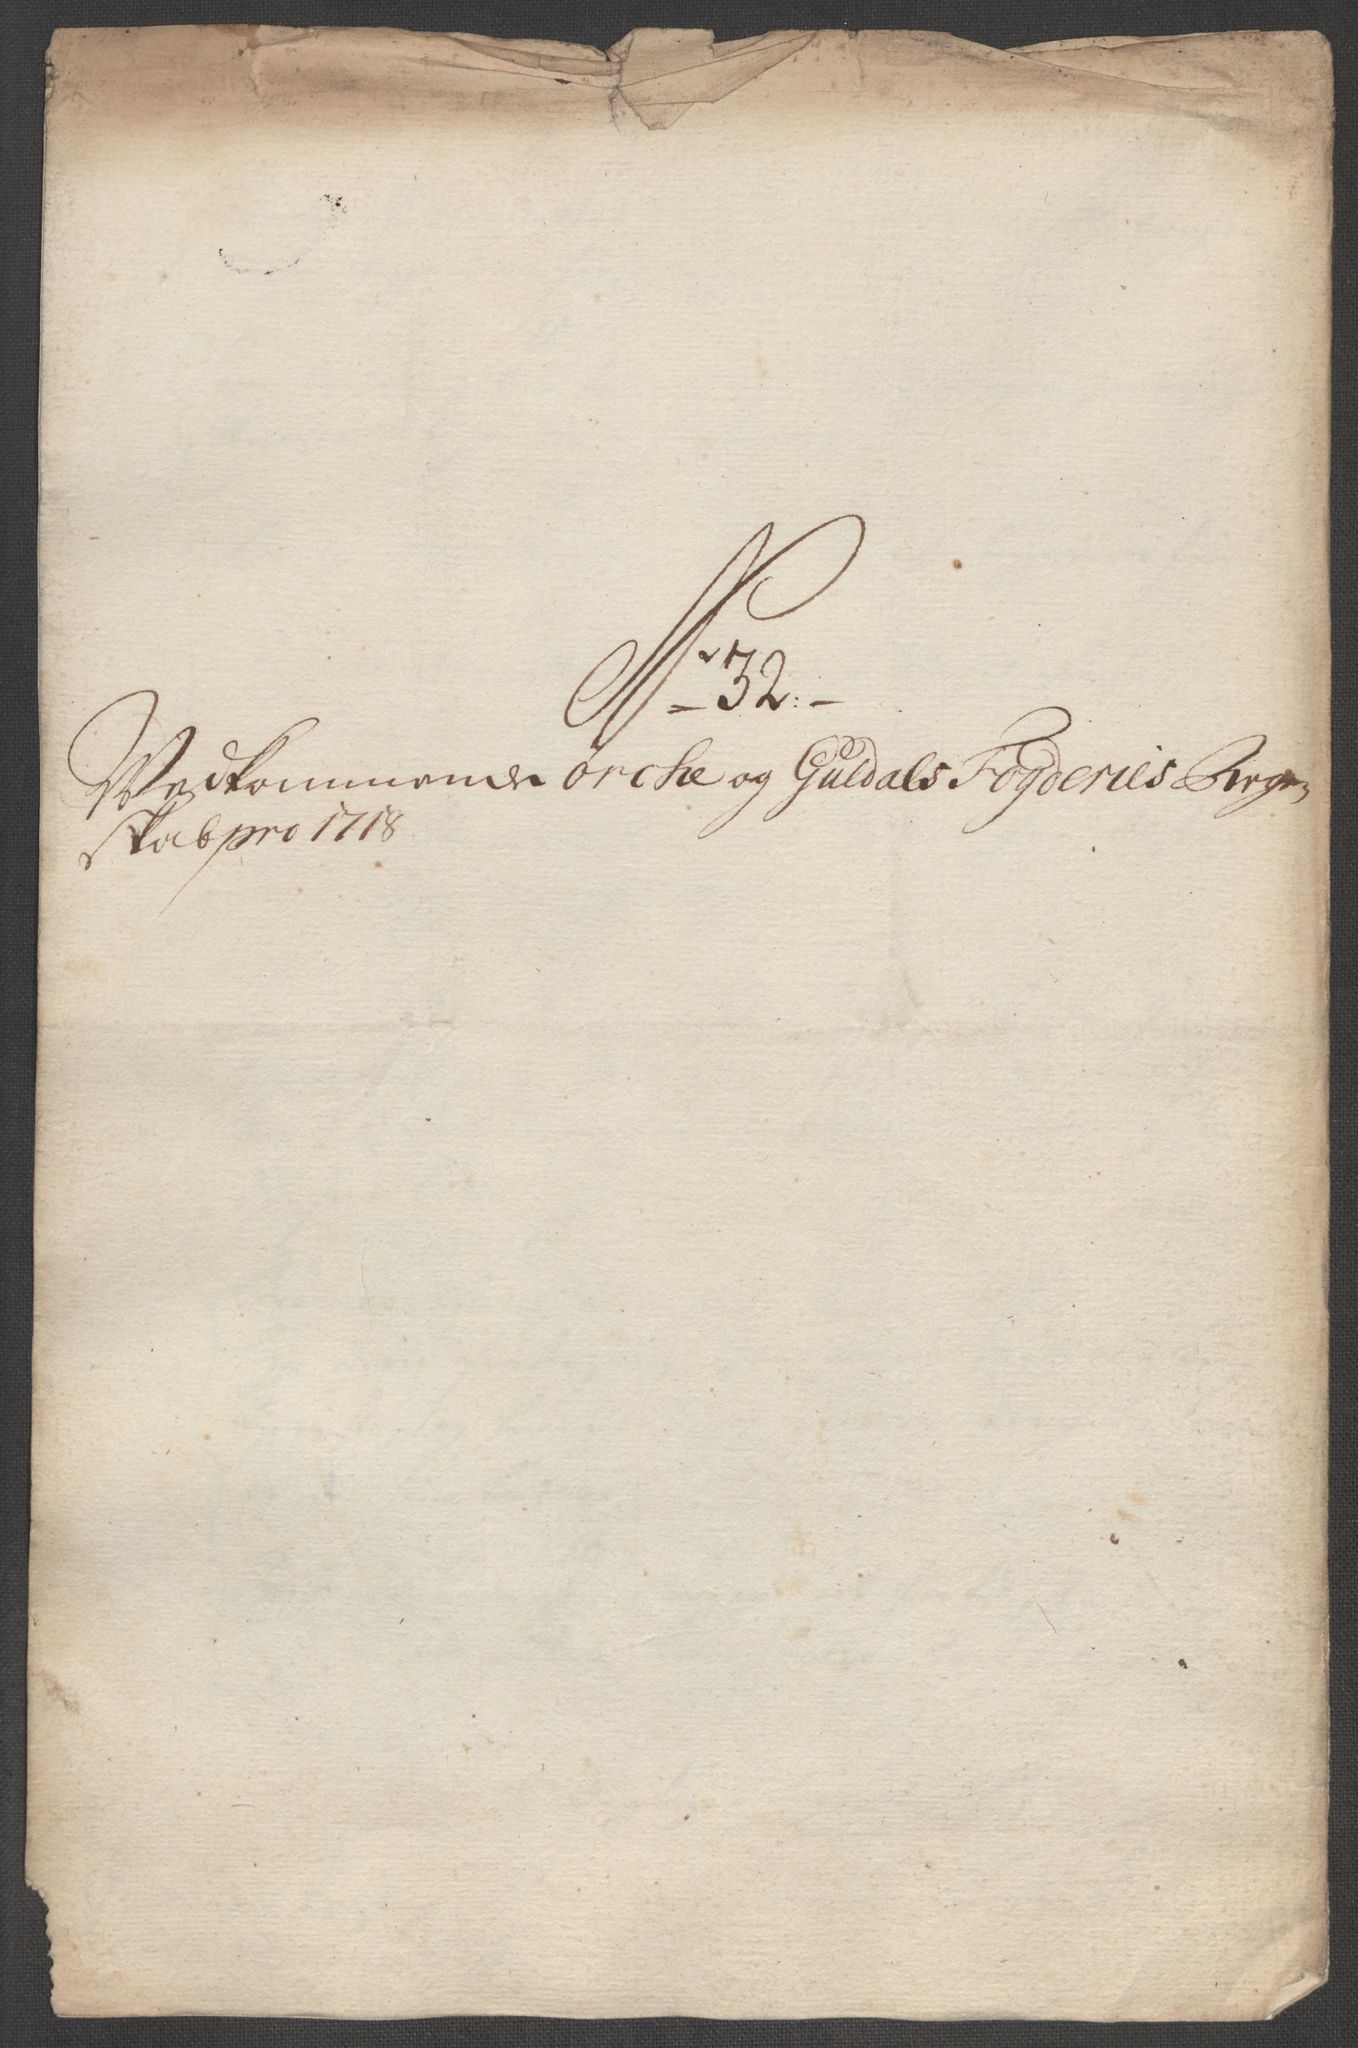 No 32.
Vedkommende Ørche og Guldals Fogderies Regn-
skab pro 1718